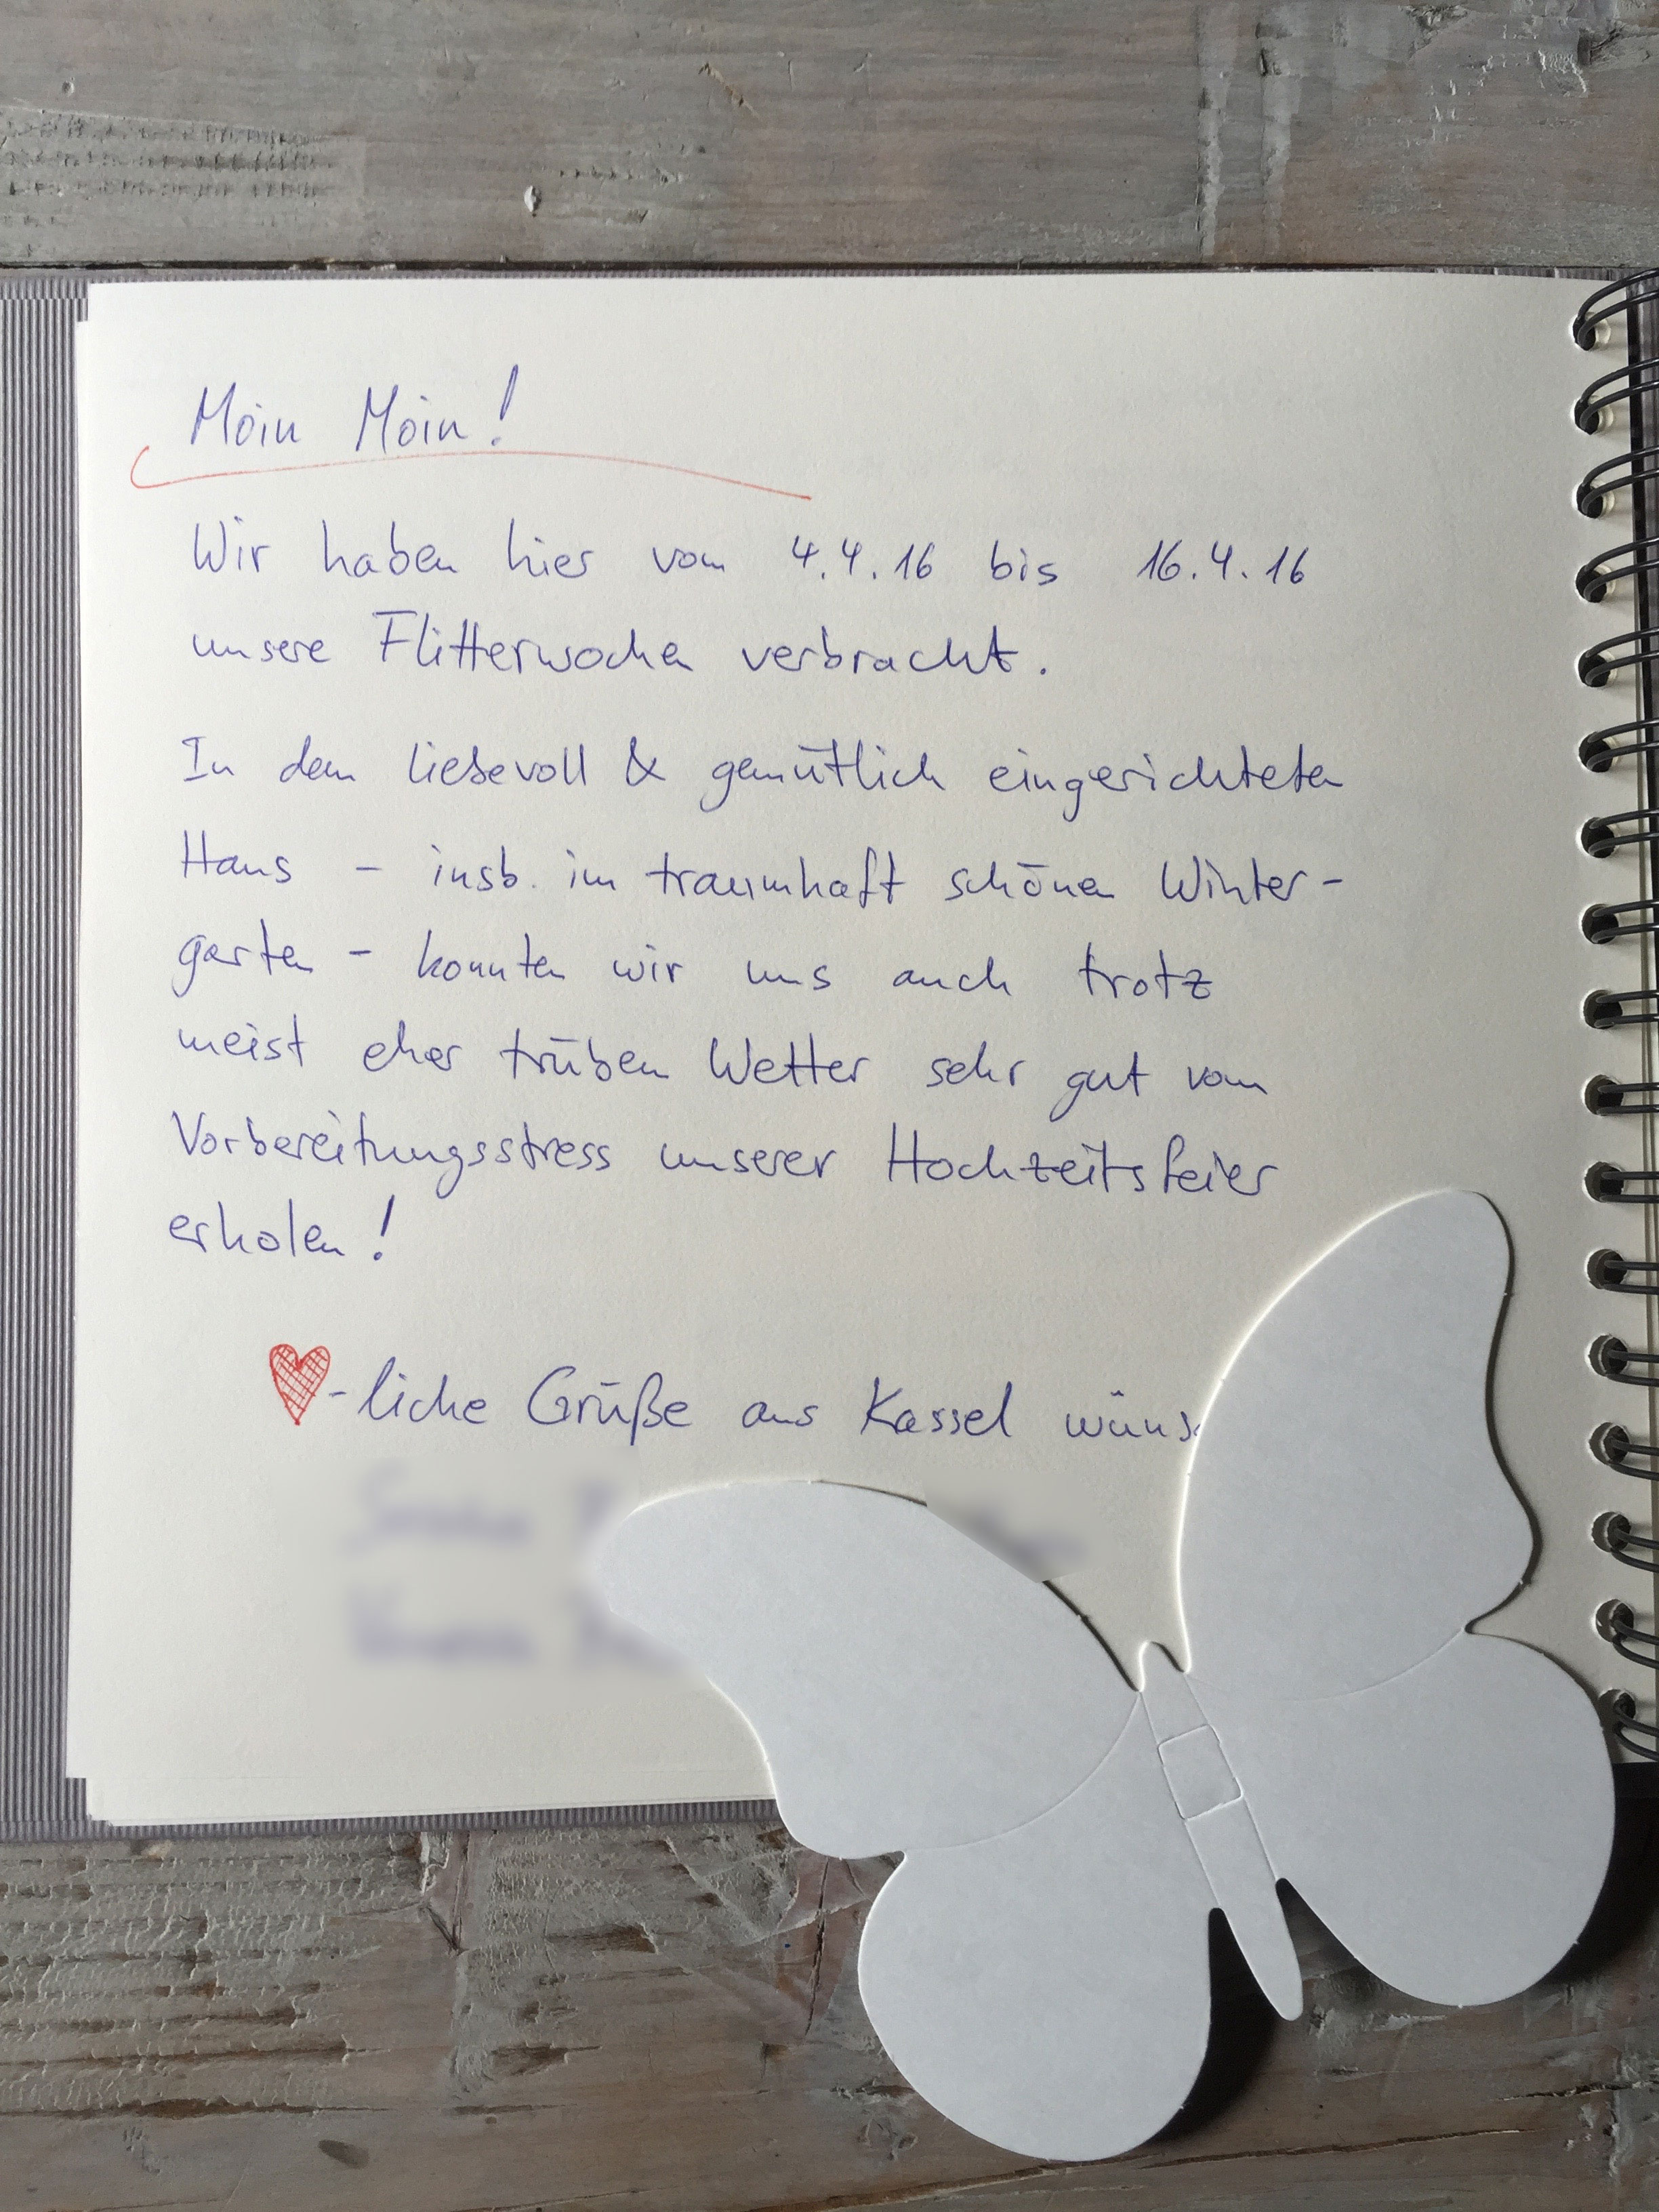 Moin Moin!
Wir haben hier vom 4.4.16 bis 16.4.16
unsere Flitterwochen verbracht.
In dem liebevoll & gemütlich eingerichteten
Haus - insb. im traumhaft schönen Winter-
garten - konnten wir uns auch trotz
meist eher trüben Wetter sehr gut vom
Vorbereitungsstress unserer Hochzeitsfeier
erholen!
♥-liche Grüße aus Kassel